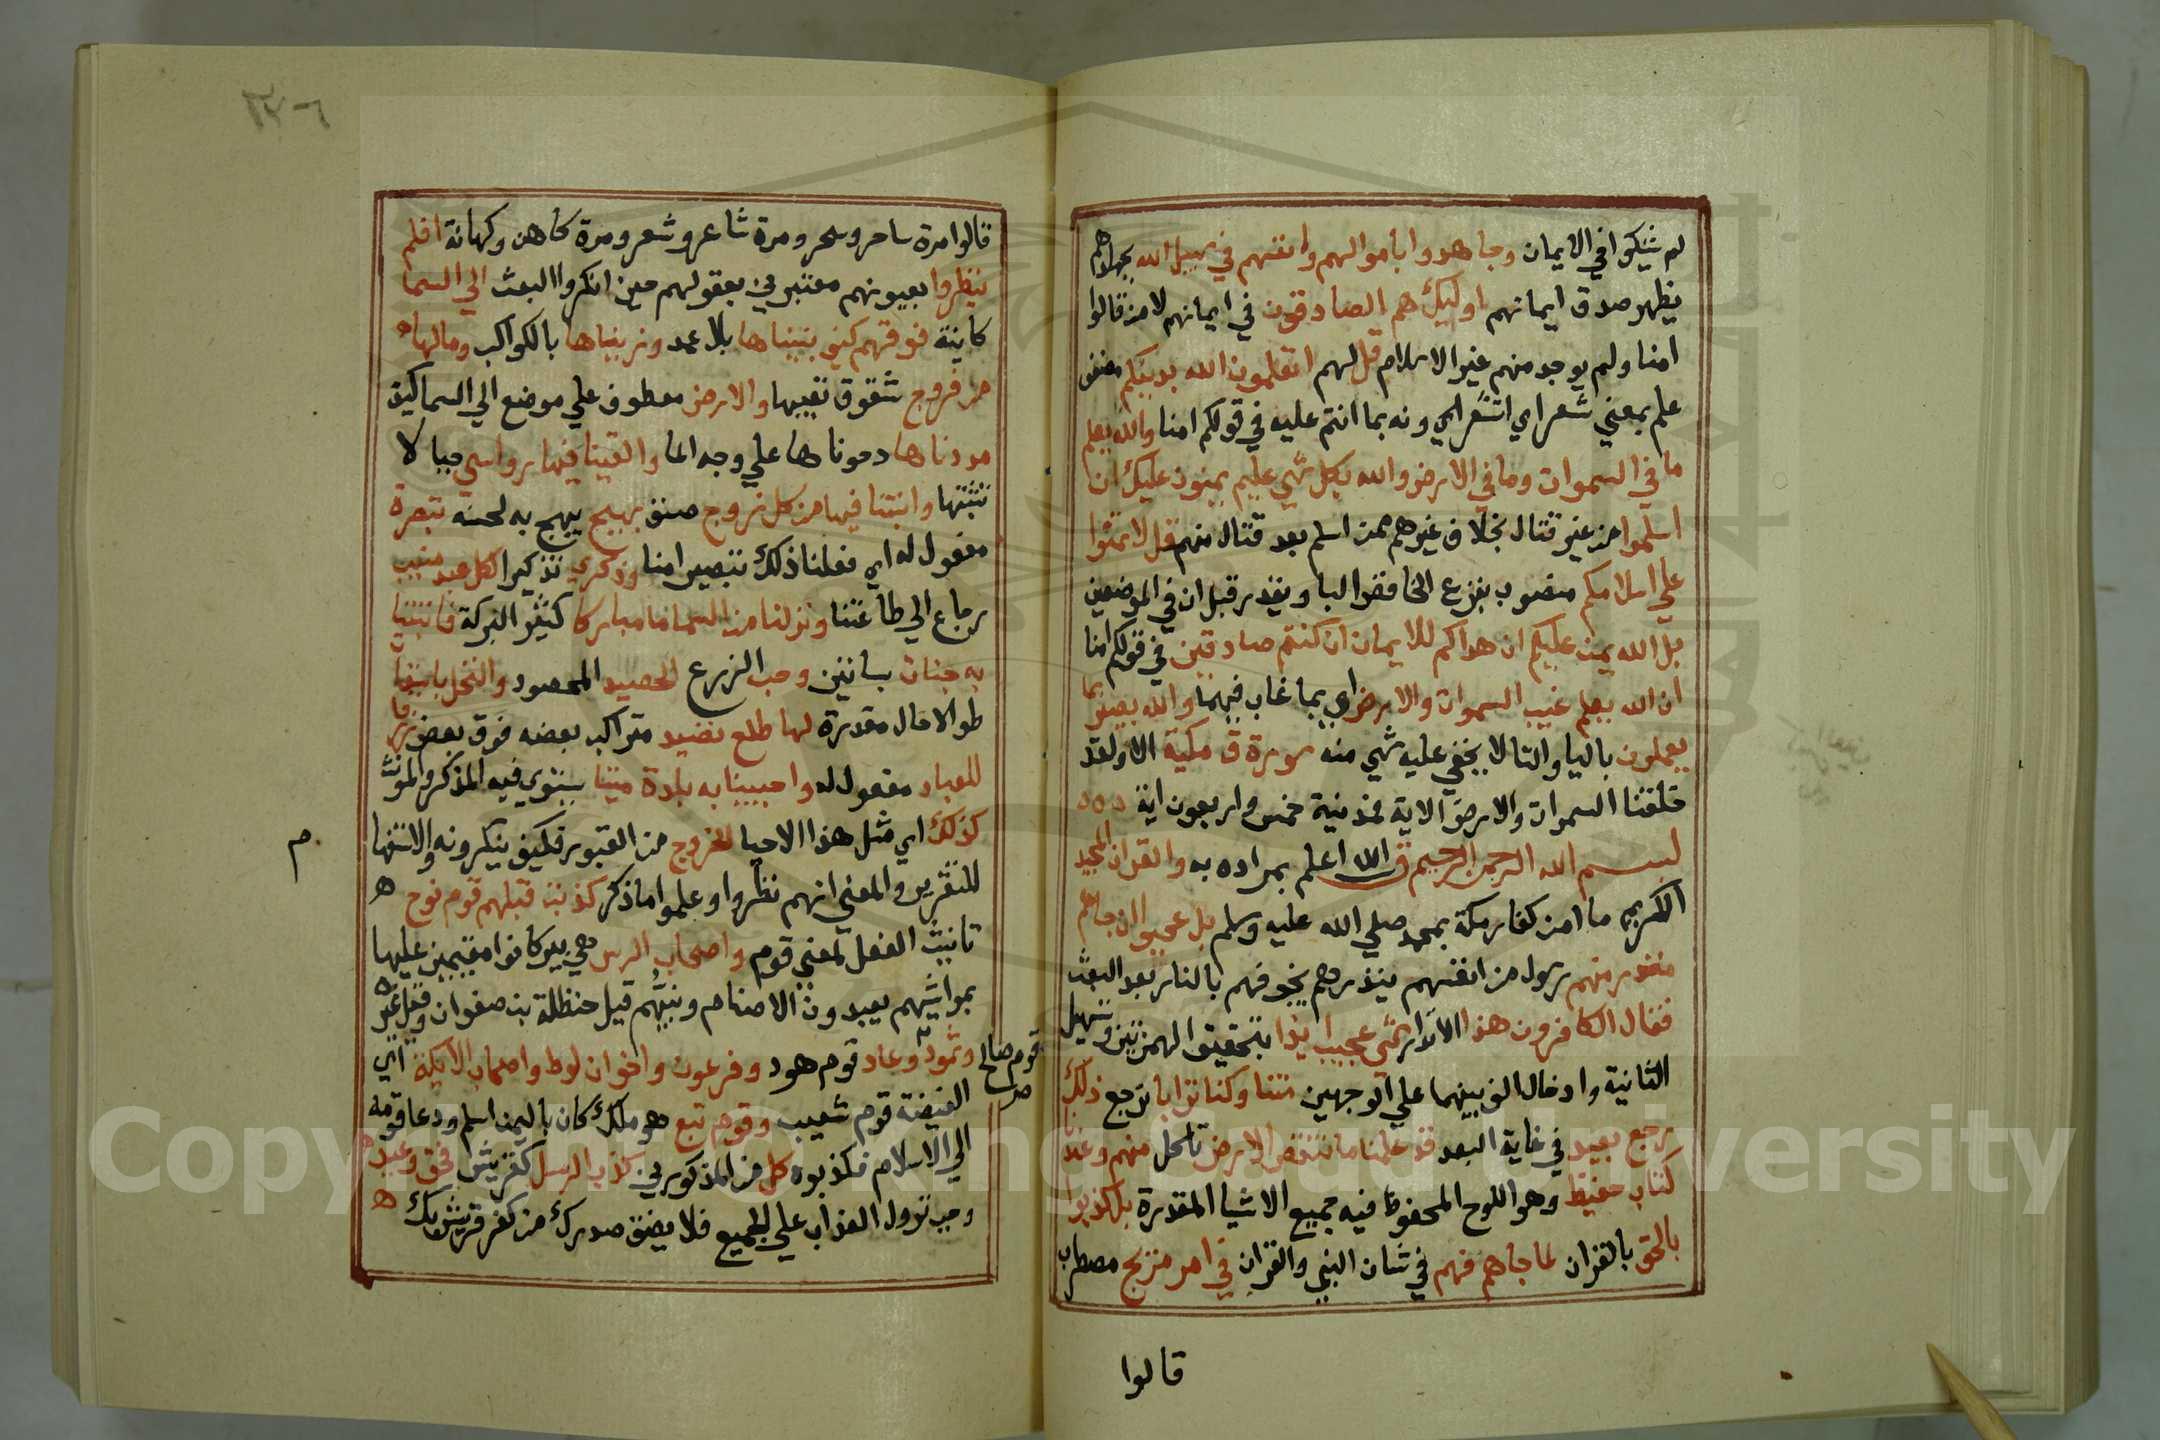 لم يشكوا في الايمان وجاهدوا باموالهم وانفسهم في سبيل الله بجهادهم
يظهر صدق ايمانهم اوليك هم الصادقون في ايمانهم لا من قالوا
امنا ولم يوجد منهم غير الاسلام قل لهم اتعلمون الله بدينكم مضعف
علم بمعني شعر اي اتشعرونه بما انتم عليه في قولكم امنا والله يعلم
ما في السموات وما في الارض والله بكل شي عليم يمنون عليك ان
اسلموا من غير قتال بخلاف غيرهم ممن اسلم بعد قتال منهم قل لا تمنوا
علي اسلامكم منصوب بنزع الخافض البا ويقدر قبل ان في الموضعين
بل الله يمن عليكم ان هداكم للايمان ان كنتم صادقين في قولكم امنا
ان الله يعلم غيب السموات والارض اي بما غاب فيهما والله بصير بما
يعملون باليا والتا لا يخفي عليه شي منه سورة ق مكية الا ولقد
خلقنا السموات والارض الاية فمدنية خمس واربعون اية
بسم الله الرحمن الرحيم ق الله اعلم بمراده به والقران المجيد
الكريم ما امن كفار مكة بمحمد صلي الله عليه وسلم بل عجبوا ان جاهم
منذر منهم رسول من انفسهم ينذرهم يخوفهم بالنار بعد البعث
فقال الكافرون هذا الانذار شي عجيب ايذا بتحقيق الهمزتين وتسهيل
الثانية وادخال الف بينهما علي الوجهين متنا وكنا ترابا نرجع ذلك
رجع بعيد في غاية البعد قد علمنا ما تنقص الارض تاكل منهم وعندنا
كتاب حفيظ وهو اللوح المحفوظ فيه جميع الاشيا المقدرة بل كذبوا
بالحق بالقران لما جاهم فهم في شان النبي والقران في امر مريج مضطرب
قالوا
٣٢٦
قالوا مرة ساحر وسحر ومرة شاعر وشعر ومرة كاهن وكهانة افلم
ينظروا بعيونهم معتبرين بعقولهم حين انكروا البعث الي السما
كاينة فوقهم كيف بنيناها بلا عمد وزيناها بالكواكب ومالها
من فروج شقوق تعيبها والارض معطوف علي موضع الي السما كيف
مددناها دحوناها علي وجه الما والقينا فيها رواسي جبالا
تثبتها وانبتنا فيها من كل زوج صنف بهيج يبهج به لحسنه تبصرة
مفعول له اي فعلنا ذلك تبصيرا منا وذكري تذكيرا لكل عبد منيب
رجاع الي طاعتنا ونزلنا من السما ما مباركا كثير البركة فانبتنا
به جنات بساتين وحب الزرع الحصيد المحصود والنخل باسقات
طوالا حال مقدرة لها طلع نضيد متراكب بعضه فوق بعض رزقا
للعباد مفعول له واحيينا به بلدة ميتا يستوي فيه المذكر والمونث
كذلك اي مثل هذا الاحيا الخروج من القبور فكيف ينكرونه والاستفهام
للتقرير والمعني انهم نظروا وعلموا ما ذكر كذبت قبلهم قوم نوح
تانيث الفعل لمعني قوم واصحاب الرس هي بير كانوا مقيمين عليها
بمواشيهم يعبدون الاصنام ونبيهم قيل حنظلة بن صفوان وقيل غيره
وثمود قوم صالح صح وعاد قوم هود وفرعون واخوان لوط واصحاب الايكة اي
الغيضة قوم شعيب وقوم تبع هو ملك كان باليمن اسلم ودعا قومه
الي الاسلام فكذبوه كل من المذكورين كذب الرسل كقريش فحق وعيد
وجب نزول العذاب علي الجميع فلا يضق صدرك من كفر قريش بك
Copyright © King Saud University